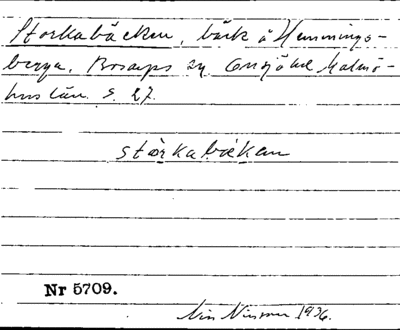 Storkabäcken, bäck å Hemmings-
berga. Bosarps sn Onsjö hd Malmö-
hus län. S. 27.
storkabäken
Nr 5709.
1936.